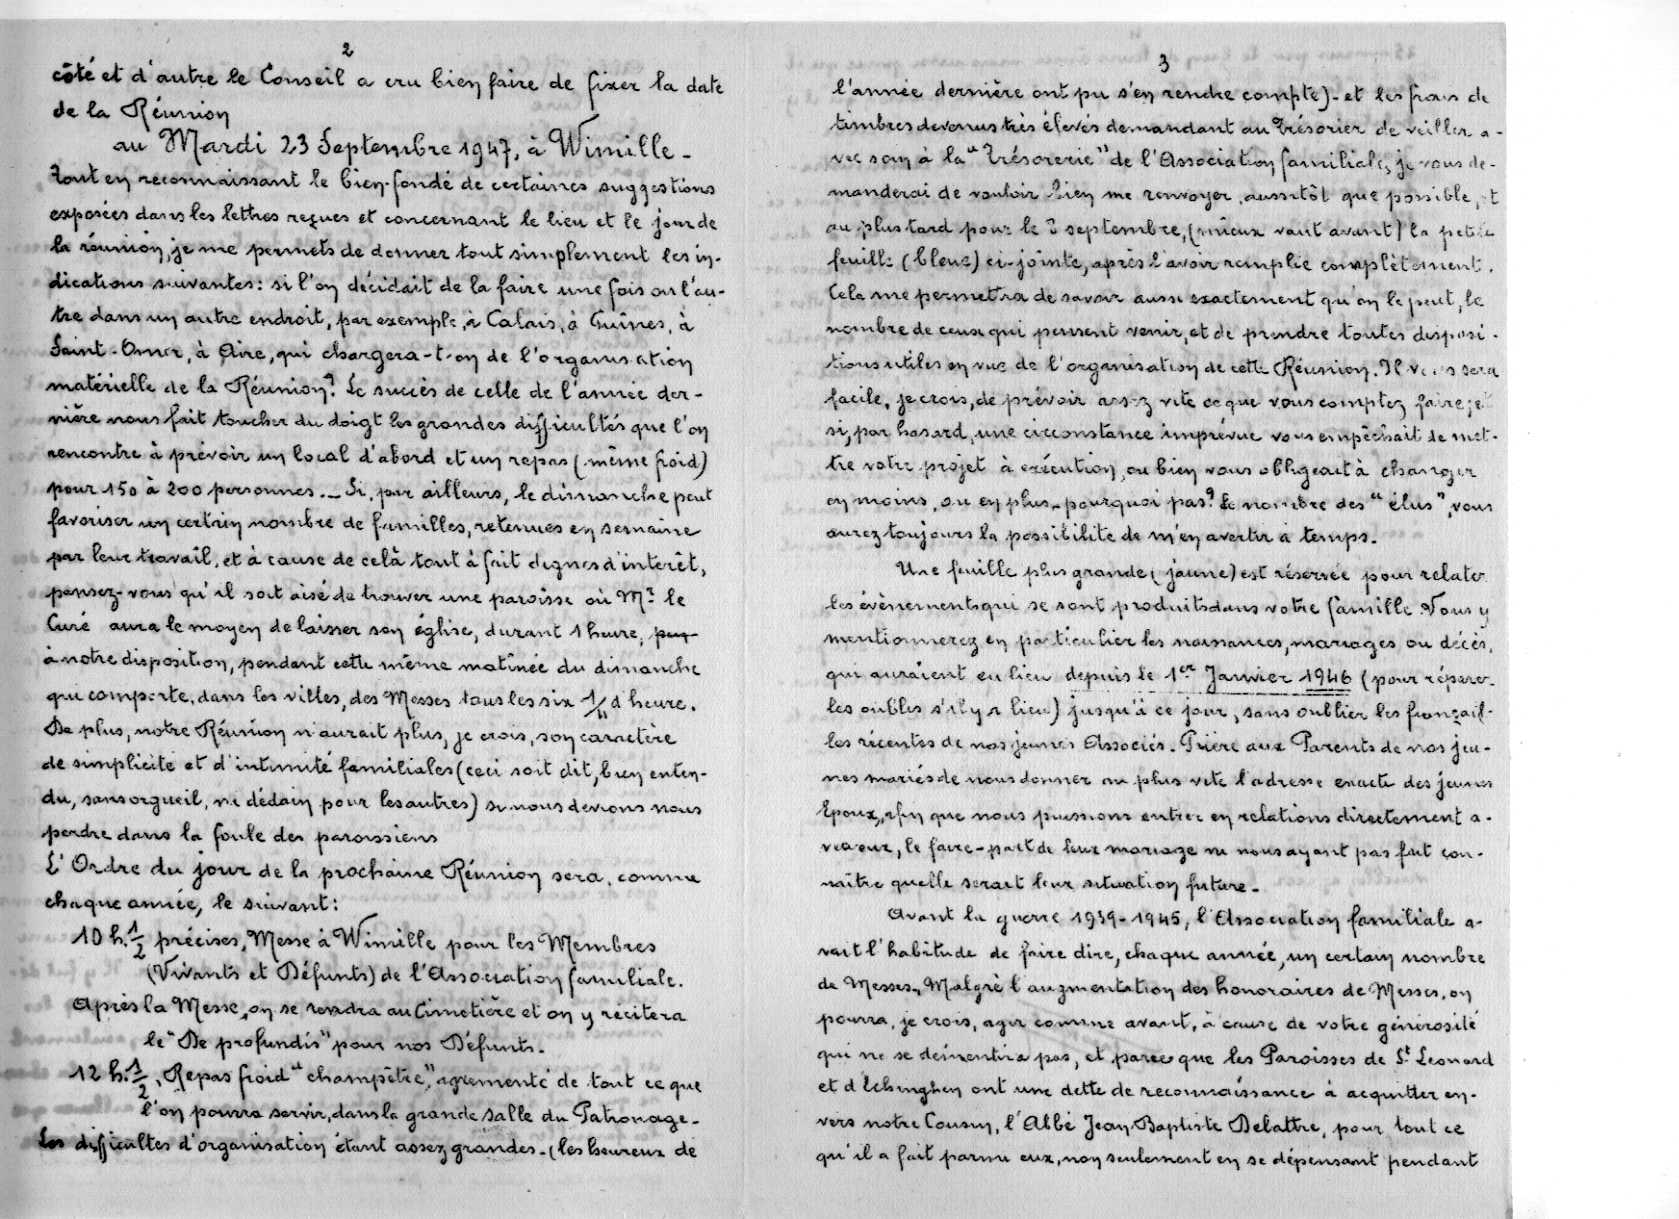 2
côté et d'autre le Conseil a cru bien faire de fixer la date
de la Réunion
au Mardi 23 Septembre 1947, à Wimille -
Tout en reconnaissant le bien-fondé de certaines suggestions
exposées dans les lettres reçues et concernant le lieu et le jour de
la réunion, je me permets de donner tout simplement les in-
dications suivantes : si l'on décidait de la faire une fois ou l'au-
tre dans un autre endroit, par exemple, à Calais, à Guînes, à
Saint-Omer, à Aire, qui chargera-t-on de l'organisation
matérielle de la Réunion? Le succès de celle de l'année der-
nière nous fait toucher du doigt les grandes difficultés que l'on
rencontre à prévoir un local d'abord et un repas (même froid)
pour 150 à 200 personnes. - Si, par ailleurs, le dimanche peut
favoriser un certain nombre de familles, retenues en semaine
par leur travail, et à cause de celà tout à fait dignes d'interêt,
pensez-vous qu'il soit aisé de trouver une paroisse où Mr le
Curé aura le moyen de laisser son église, durant 1 heure,
à notre disposition, pendant cette même matinée du dimanche
qui comporte, dans les villes, des Messes tous les six 1/4 d'heure.
De plus, notre Réunion n'aurait plus, je crois, son caractère
de simplicité et d'intimité familiales (ceci soit dit, bien enten-
du, sans orgueil, ni dédain pour les autres) si nous devions nous
perdre dans la foule des paroissiens
L'Ordre du jour de la prochaine Réunion sera, comme
chaque année, le suivant :
10 h. 1/2 précises, Messe à Wimille pour les Membres
(Vivants et Défunts) de l'Association familiale.
Après la Messe, on se rendra au Cimetière et on y récitera
le "De profundis" pour nos Défunts.
12 h. 1/2, Repas froid "champêtre", agrémenté de tout ce que
l'on pourra servir, dans la grande salle du Patronage.
Les difficultés d'organisation étant assez grandes - (les heureux de
3
l'année dernière ont pu s'en rendre compte) - et les frais de
timbres devenus très élevés demandant au Trésorier de veiller a-
vec soin à la "Trésorerie" de l'Association familiale, je vous de-
manderai de vouloir bien me renvoyer, aussitôt que possible, et
au plus tard pour le septembre, (mieux vaut avant) la petite
feuille (bleue) ci-jointe, après l'avoir remplie complètement.
Cela me permettra de savoir aussi exactement qu'on le peut, le
nombre de ceux qui pensent venir, et de prendre toutes disposi-
tions utiles en vue de l'organisation de cette Réunion. Il vous sera
facile, je crois, de prévoir assez vite ce que vous comptez faire; et
si, par hasard, une circonstance imprévue vous empêchait de met-
tre votre projet à exécution, ou bien vous obligeait à changer
en moins, ou en plus, pourquoi pas? Le nombre des "élus", vous
aurez toujours la possibilité de m'en avertir à temps.
Une feuille plus grande (jaune) est réservée pour relater
les évènements qui se sont produits dans votre famille. Vous y
mentionnerez en particulier les naissances, mariages ou décès,
qui auraient eu lieu depuis le 1er Janvier 1946 (pour réparer
les oublis s'il y a lieu) jusqu'à ce jour, sans oublier les fiançail-
les récentes de nos jeunes Associés. Prière aux Parents de nos jeu-
nes mariés de nous donner au plus vite l'adresse exacte des jeunes
Epoux, afin que nous puissions entrer en relations directement a-
vec eux, le faire-part de leur mariage ne nous ayant pas fait con-
naître quelle serait leur situation future -
Avant la guerre 1939-1945, l'Association familiale a-
vait l'habitude de faire dire, chaque année, un certain nombre
de Messes. Malgré l'augmentation des honoraires de Messes, on
pourra, je crois, agir comme avant, à cause de votre générosité
qui ne se démentira pas, et parce que les Paroisses de St Léonard
et d'Echinghen ont une dette de reconnaissance à acquitter en-
vers notre Cousin, l'Abbé Jean-Baptiste Delattre, pour tout ce
qu'il a fait parmi eux, non seulement en se dépensant pendant